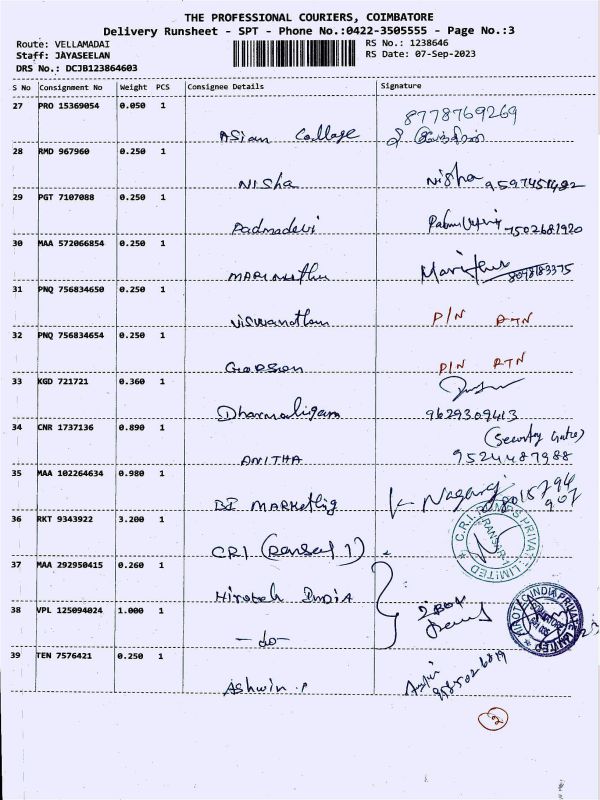 THE PROFESSIONAL COURIERS, COIMBATORE
Delivery Runsheet - SPT - Phone No.:0422-3505555 - Page No.:3
Route: VELLAMADAI RS No.: 1238646
Staff: JAYASEELAN RS Date: 07-Sep-2023
DRS No.: DCJB123864603
S No Consignment No Weight PCS Consignee Details Signature
27 PRO 15369054 0.050 1 Asian Collage 8778769269
28 RMD 967960 0.250 1 Nisha Nisha 9597451482
29 PGT 7107088 0.250 1 Padmadevi 7502681920
30 MAA 572066854 0.250 1 MARIMuthu 8098183375
31 PNQ 756834650 0.250 1 Viswanatham P/N RTN
32 PNQ 756834654 0.250 1 P/N RTN
33 KGD 721721 0.360 1 Dharmaligam 9629309413
(Security Gate)
34 CNR 1737136 0.890 1 ANITHA 9524487988
35 MAA 102264634 0.980 1 BI MARKetlig K- Nagaraj 8015794
907
36 RKT 9343922 3.200 1 CRI
C.R.I. PUMPS PRIVATE LIMITED
37 MAA 292950415 0.260 1 Hirotek India
38 VPL 125094024 1.000 1 -do-
INDIA PRIVATE LIMITED
39 TEN 7576421 0.250 1 Ashwin.P
2